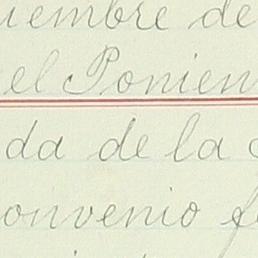 iembre de
el Ponien
da de la
onvenio f